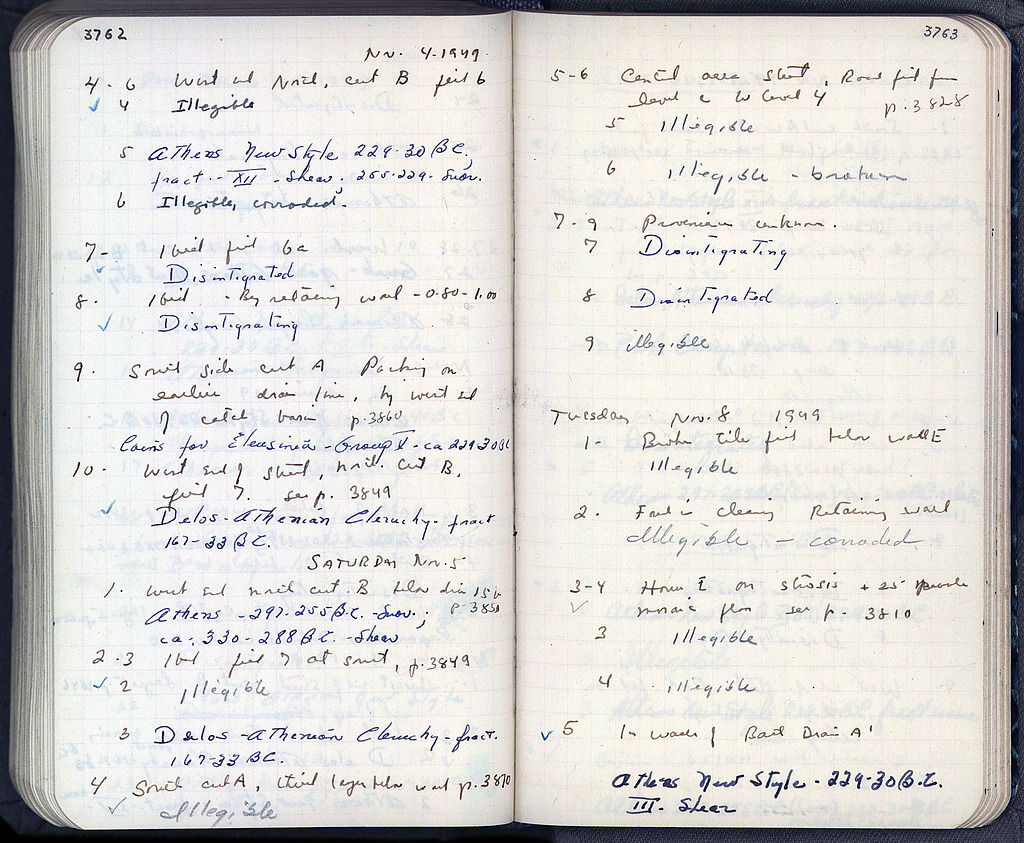 3762
Nov. 4-1949
4. 6 West end North, cut B pit 6
4 Illegible
5 Athens New Style 229-30 B.C.
fract -- XII - Shear; 255-229- Svor.
6 Illegible, corroded.
7- Ibid pit 6a
Disintigrated
8. Ibid - By retaining wall - 0.80-1.00
Disintigrating
9. South side cut A Packing on
earlier drain line, by west end
of catch basin p. 3860
Coins for Eleusinia - Group V - ca 229-30 BC
10- West end of street, north cut B,
pit 7. see p. 3849
Delos - Athenian Cleruchy - fract
167-33 B.C.
SATURDAY Nov. 5
1. West end north cut B below drain
p. 3850
Athens - 297-255 B.C. - Svor.;
ca. 330-288 B.C. - Shear
2.3 Ibid pit 7 at south, p. 3849
2 Illegible
3 Delos - Athenian Cleruchy - fract.
167-33 BC.
4 South cut A, third layer below wall p. 3870
Illegible
3763
5-6 Central area street, Road fill from
level c to level 4
p. 3828
5 Illegible
6 Illegible - broken
7-9 Provenience unknown.
7 Disintigrating
8 Disintigrated
9 illegible
Tuesday Nov. 8 1949
1- Broken tile pit below wall E
Illegible
2. Found in cleaning Retaining wall
Illegible - corroded
3-4 House E on stosis + 25
mosaic floor see p. 3810
3 Illegible
4 Illegible
5 In wash of East Drain A'
Athens New Style - 229-30 B.C.
III - Shear